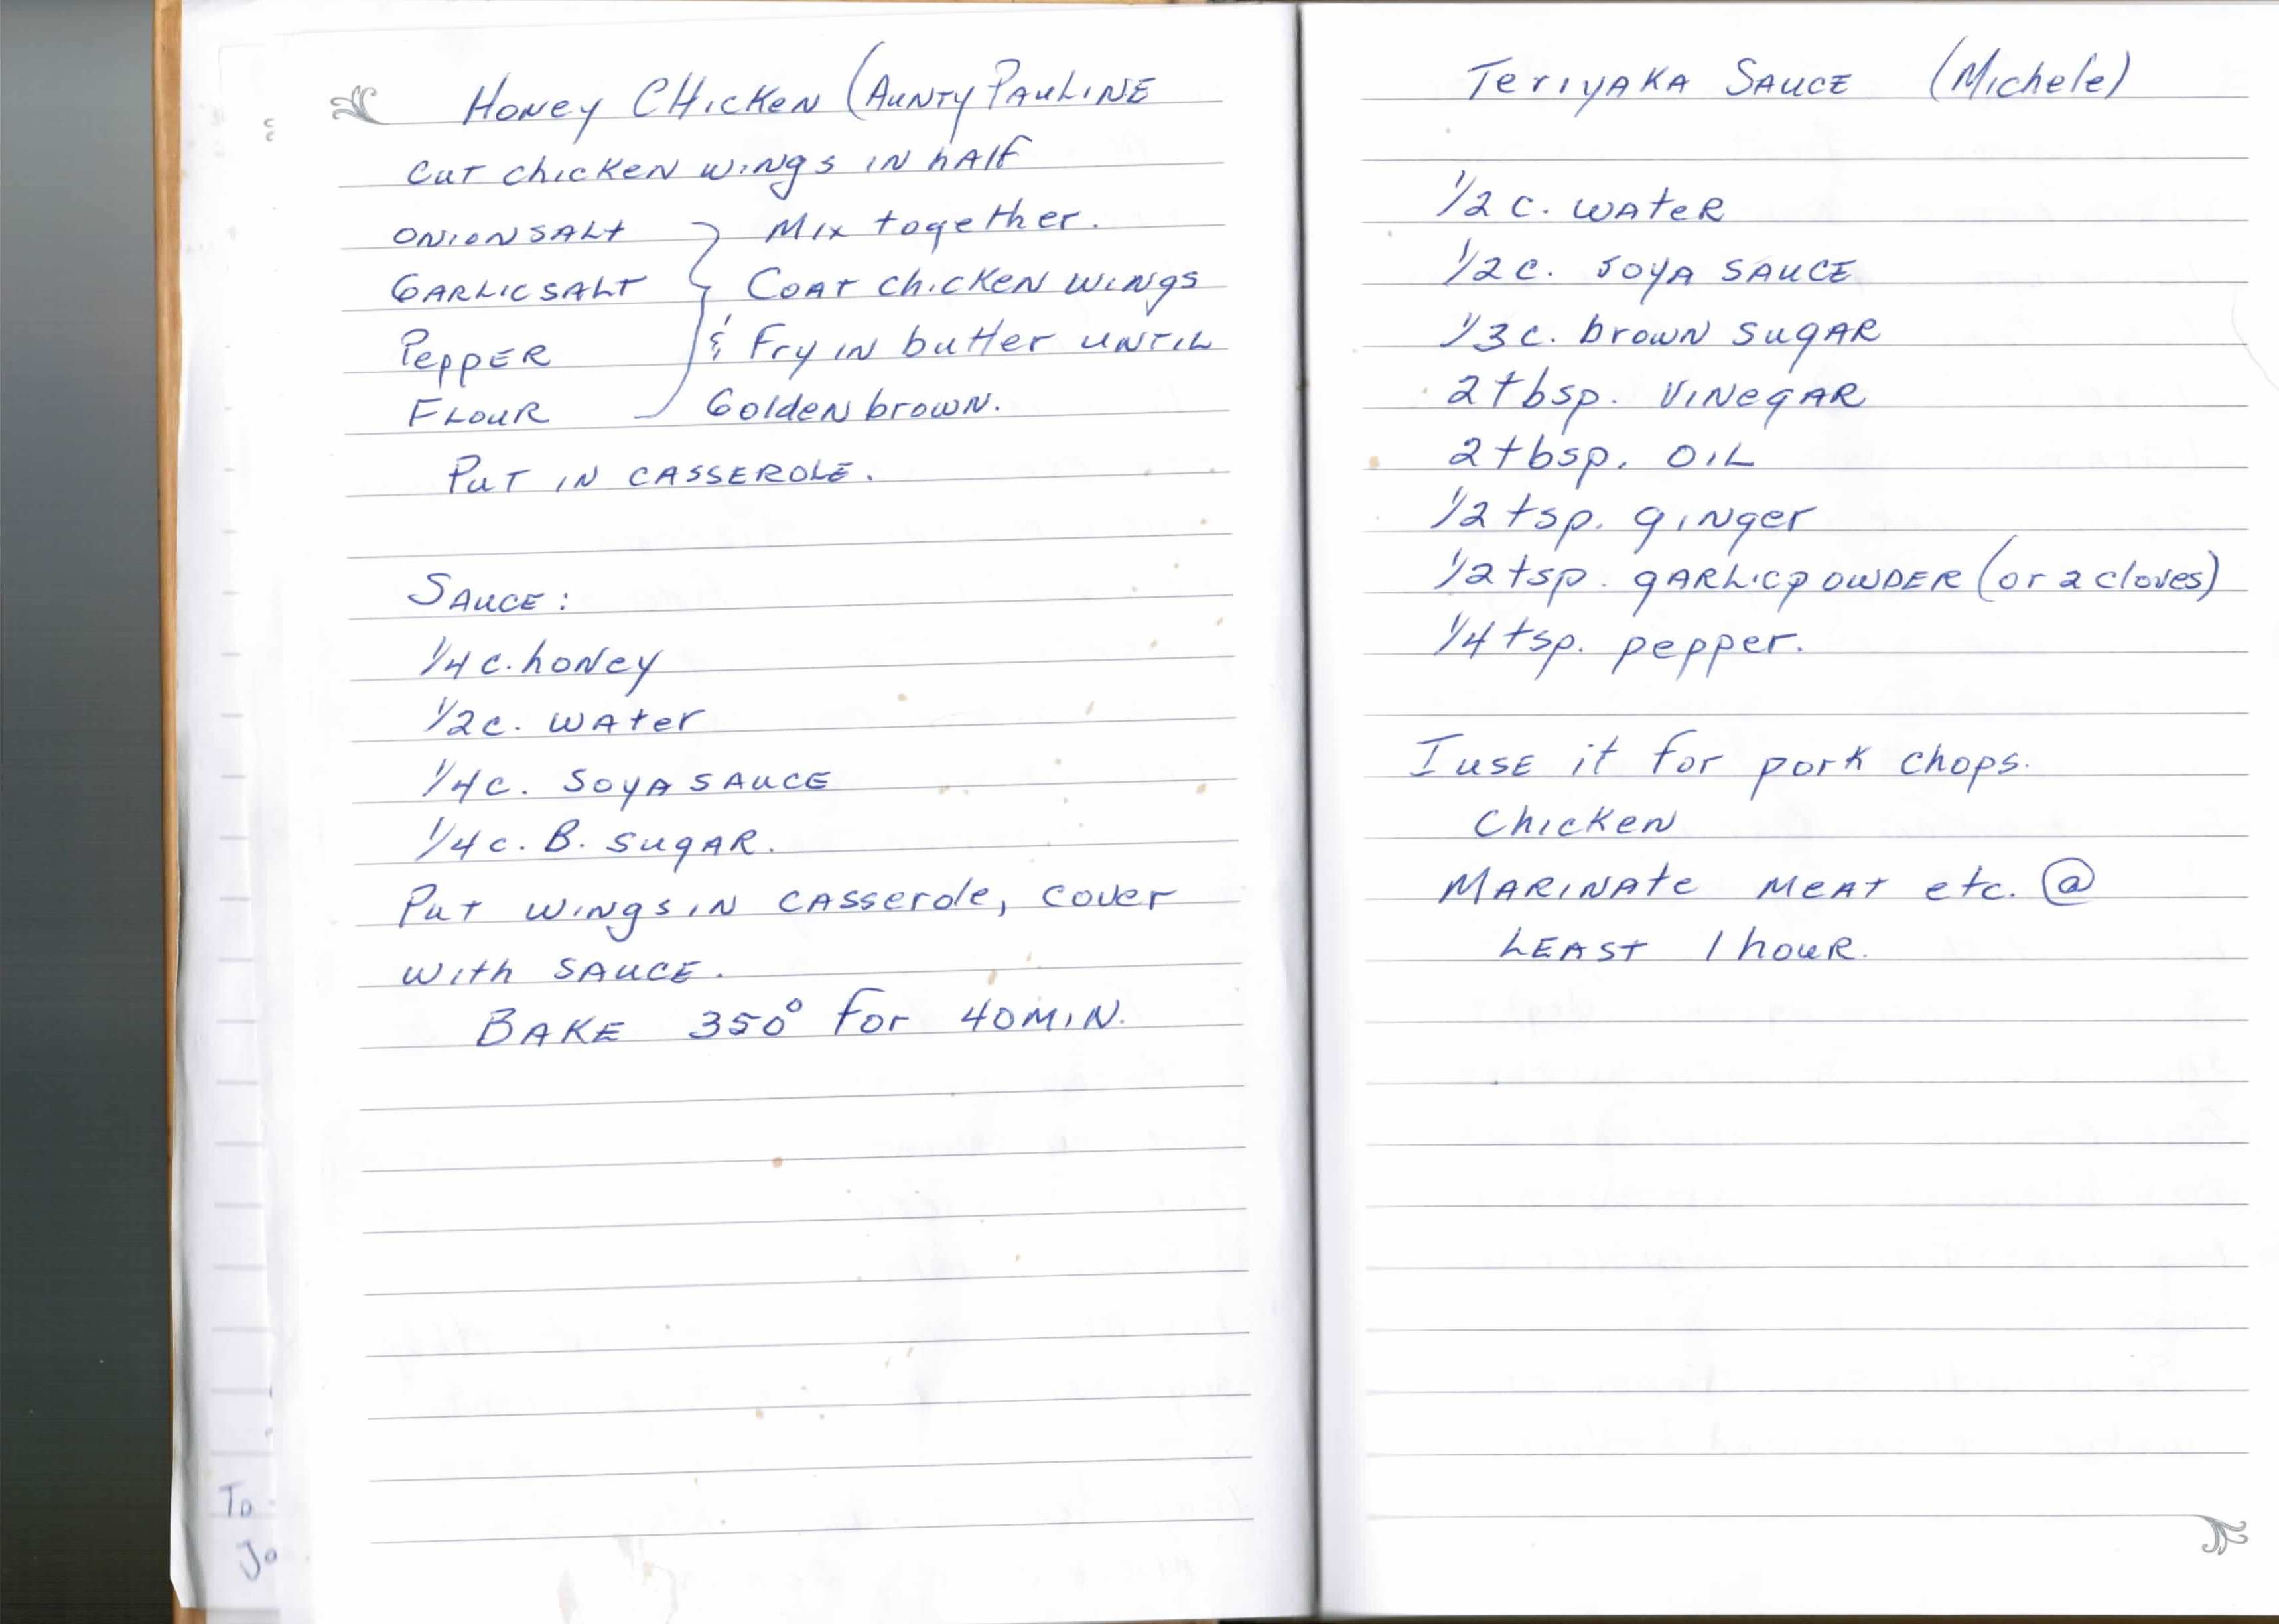 Honey Chicken (Aunty Pauline
Cut chicken wings in half
Onion salt } Mix together.
Garlic salt Coat chicken wings
Pepper & Fry in butter until
Flour Golden brown.
Put in casserole.
Sauce:
1/4 c. honey
1/2 c. water
1/4 c. Soya sauce
1/4 c. B. sugar.
Put wings in casserole, cover
with sauce.
Bake 350° for 40 min.
To
Jo
Teriyaka Sauce (Michele)
1/2 c. water
1/2 c. soya sauce
1/3 c. brown sugar
2 tbsp. vinegar
2 tbsp. oil
1/2 tsp. ginger
1/2 tsp. garlic powder (or 2 cloves)
1/4 tsp. pepper.
I use it for pork chops.
Chicken
Marinate meat etc. @
least 1 hour.